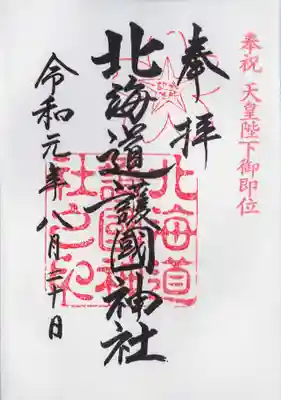 奉祝 天皇陛下御即位
奉拝
北海道護國神社
令和元年八月二十日
北海道
護國神
社之印